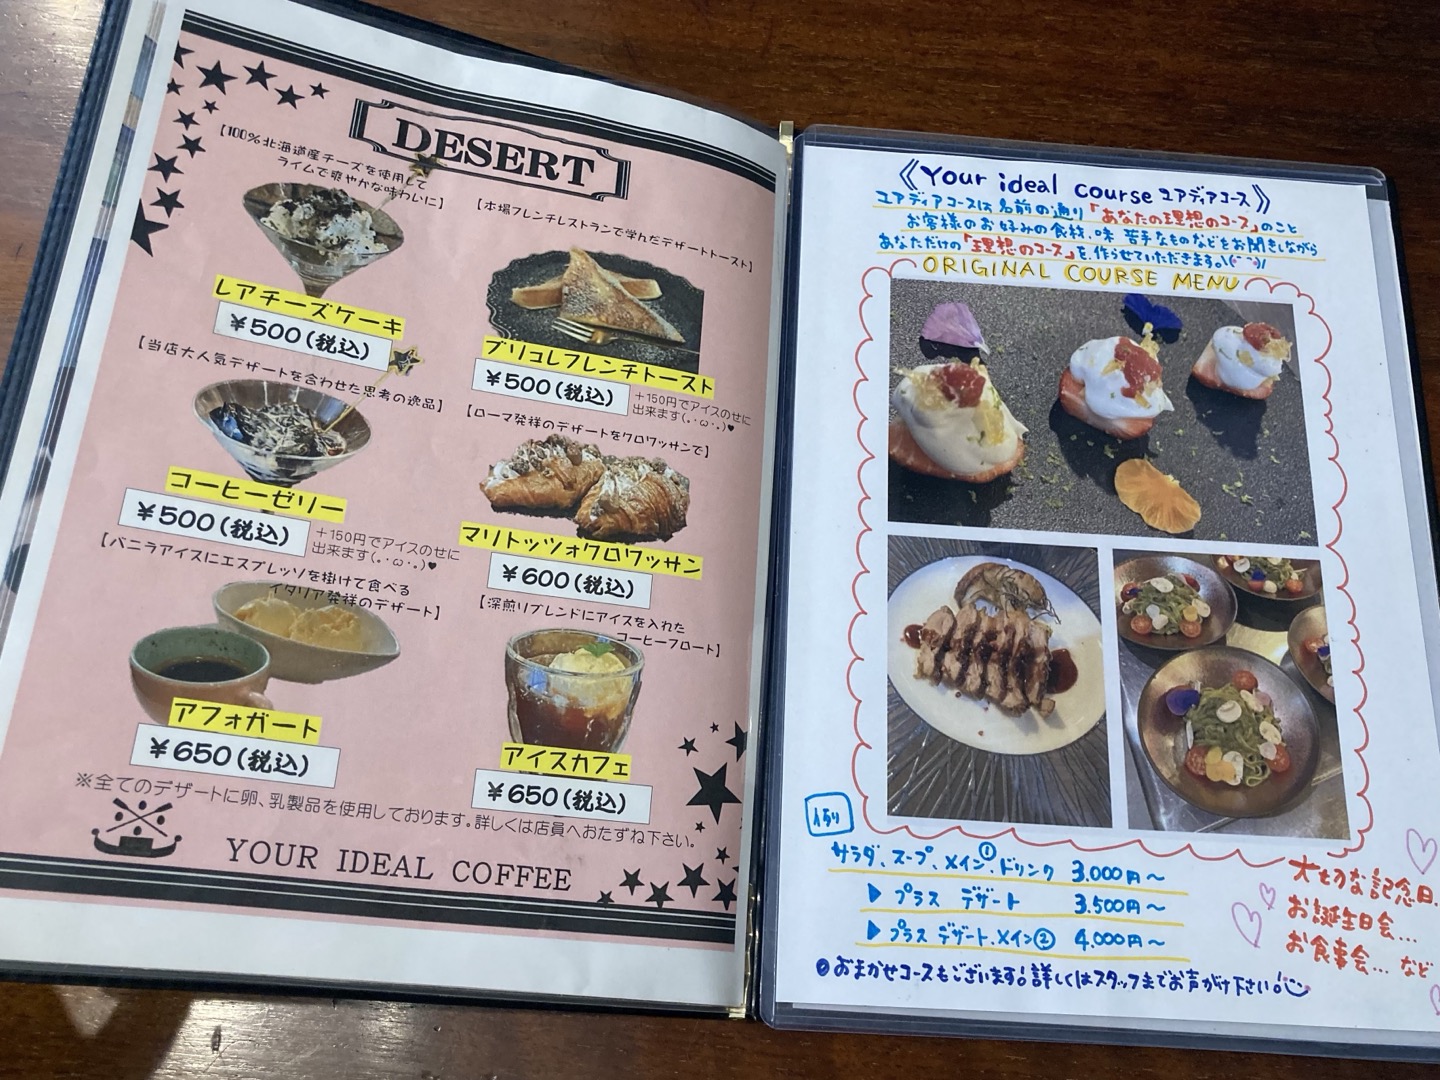 DESERT
【100%北海道産チーズを使用して
ライムで爽やかな味わいに】
レアチーズケーキ
￥500(税込)
【本場フレンチレストランで学んだデザートトースト】
ブリュレフレンチトースト
￥500(税込)
+150円でアイスのせに
出来ます(｡･ω･｡)♥
【当店大人気デザートを合わせた思考の逸品】
コーヒーゼリー
￥500(税込)
+150円でアイスのせに
出来ます(｡･ω･｡)♥
【ローマ発祥のデザートをクロワッサンで】
マリトッツォクロワッサン
￥600(税込)
【バニラアイスにエスプレッソを掛けて食べる
イタリア発祥のデザート】
アフォガート
￥650(税込)
【深煎りブレンドにアイスを入れた
コーヒーフロート】
アイスカフェ
￥650(税込)
※全てのデザートに卵、乳製品を使用しております。詳しくは店員へおたずね下さい。
YOUR IDEAL COFFEE
《Your ideal course ユアディアコース》
ユアディアコースは名前の通り「あなたの理想のコース」のこと
お客様のお好みの食材、味 苦手なものなどをお聞きしながら
あなただけの「理想のコース」を作らせていただきます。
ORIGINAL COURSE MENU
例
サラダ、スープ、メイン①、ドリンク 3.000円～
▶ プラス デザート 3.500円～
▶ プラス デザート、メイン② 4.000円～
大切な記念日、
お誕生日会…
お食事会… など
おまかせコースもございます！詳しくはスタッフまでお声がけ下さい。